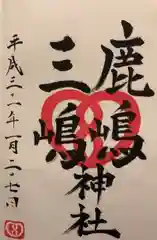 鹿嶋
三嶋
神社
平成三十一年一月二十七日